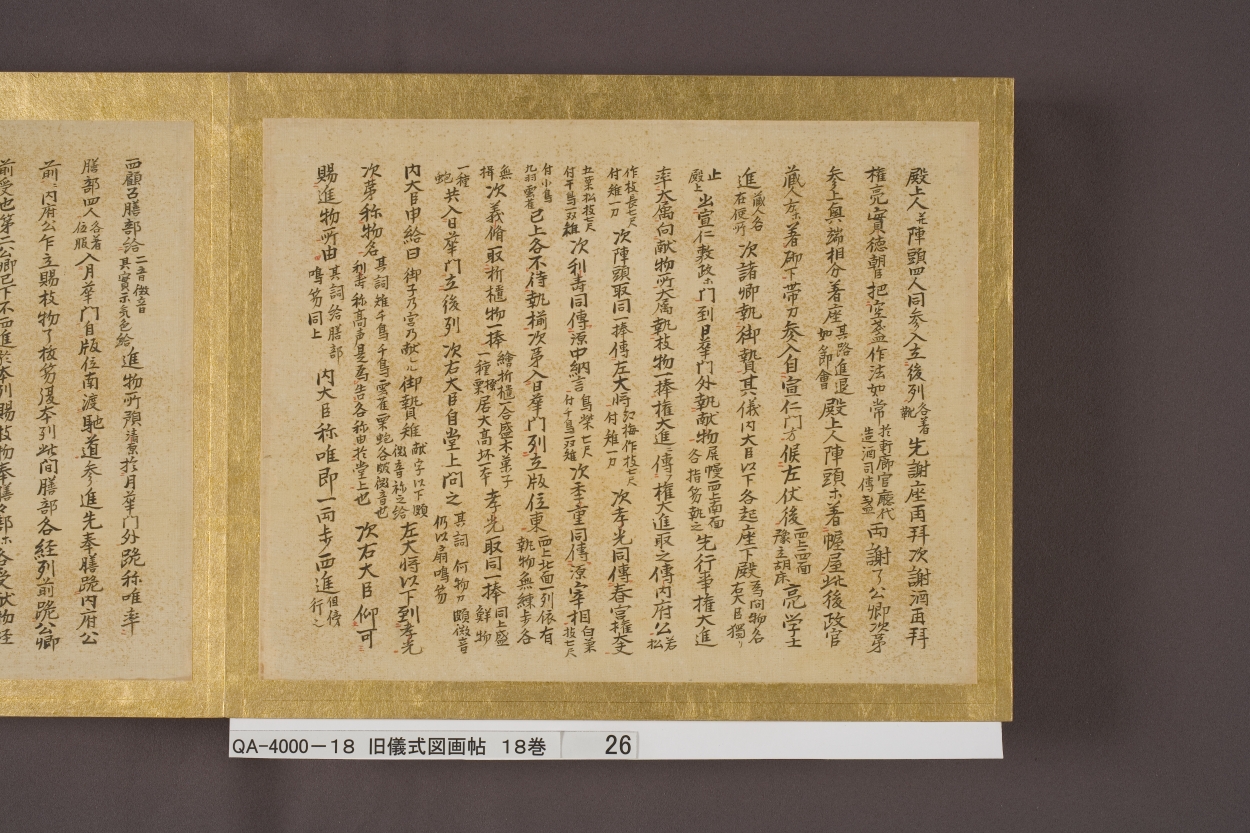 殿上人并陣頭四人同参入立後列各着靴先謝座再拝次謝酒再拝
権亮實徳朝臣把空盞作法如常於軒廊官廳代造酒司傳盞両謝了公卿次第
参上奥端相分着座其路進退如節會殿上人陣頭等着幄屋此後政官
蔵人等着砌下帯刀参入自宣仁門方候左仗後西上北面亮学士
進蔵人名在便所次諸卿執御贄其儀内大臣以下各起座下殿為問物名右大臣獨
止殿上出宣仁敷政等門到日華門外執献物屏幔西上南面各指笏執之先行事権大進
率大属向献物所大属執枝物一捧権大進傳権大進取之傳内府公若松
作枝長七尺付雉一刀次陣頭取同一捧傳左大将紅梅作枝七尺付雉一刀次孝光同傳春宮権大夫
五葉松枝七尺付千鳥一双雉次利壽同傳源中納言鳥柴七尺付千鳥一双雉次季童同傳源宰相白菓枝七尺
付小鳥九羽雲雀已上各不待執揃次第入日華門列立版位東西上北面一列依有執物無練歩各
無揖次義脩取折櫃物一捧繪折櫃一合盛木菓子一種擣栗居大高坏本孝光取同一捧同上盛鮮物
一種鮑共入日華門立後列次右大臣自堂上問之其詞何物刀頗微音仍以扇鳴笏
内大臣申給曰御子乃宮乃献御贄雉献字以下頗微音称之給左大将以下到孝光
次第称物名其詞雉千鳥千鳥雲雀栗鮑各皈微音也利壽称高声是為告各称由於堂上也次右大臣仰可
賜進物所由其詞給膳部鳴笏同上内大臣称唯即一両歩西進但傍行
西顧召膳部給二音微音其實示気色給進物所預清原於月華門外跪称唯率
膳部四人各着位服入月華門自版位南渡馳道参進先奉膳跪内府公
前内府公乍立賜枝物了抜笏復本列此間膳部各経列前跪公卿
前受也第二公卿已下不西進於本列賜枝物奉膳
QA-4000-18 旧儀式図画帖 18巻 26